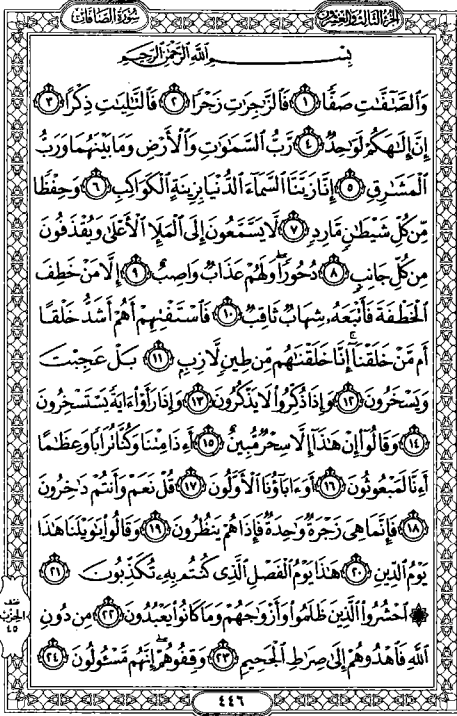 سُورَةُ الصَّافَّاتِ
الجُزْءُ الثَّالِثُ وَالعِشْرُونَ
بِسْمِ اللَّهِ الرَّحْمَٰنِ الرَّحِيمِ
وَالصَّٰٓفَّٰتِ صَفًّا ١ فَالزَّٰجِرَٰتِ زَجْرًا ٢ فَالتَّٰلِيَٰتِ ذِكْرًا ٣
إِنَّ إِلَٰهَكُمْ لَوَٰحِدٌ ٤ رَّبُّ السَّمَٰوَٰتِ وَالْأَرْضِ وَمَا بَيْنَهُمَا وَرَبُّ
الْمَشَٰرِقِ ٥ إِنَّا زَيَّنَّا السَّمَآءَ الدُّنْيَا بِزِينَةٍ الْكَوَاكِبِ ٦ وَحِفْظًا
مِّن كُلِّ شَيْطَٰنٍ مَّارِدٍ ٧ لَّا يَسَّمَّعُونَ إِلَى الْمَلَإِ الْأَعْلَىٰ وَيُقْذَفُونَ
مِن كُلِّ جَانِبٍ ٨ دُحُورًا ۖ وَلَهُمْ عَذَابٌ وَاصِبٌ ٩ إِلَّا مَنْ خَطِفَ
الْخَطْفَةَ فَأَتْبَعَهُۥ شِهَابٌ ثَاقِبٌ ١٠ فَاسْتَفْتِهِمْ أَهُمْ أَشَدُّ خَلْقًا
أَم مَّنْ خَلَقْنَآ ۚ إِنَّا خَلَقْنَٰهُم مِّن طِينٍ لَّازِبٍ ١١ بَلْ عَجِبْتَ
وَيَسْخَرُونَ ١٢ وَإِذَا ذُكِّرُوا۟ لَا يَذْكُرُونَ ١٣ وَإِذَا رَأَوْا۟ ءَايَةً يَسْتَسْخِرُونَ
١٤ وَقَالُوٓا۟ إِنْ هَٰذَآ إِلَّا سِحْرٌ مُّبِينٌ ١٥ أَءِذَا مِتْنَا وَكُنَّا تُرَابًا وَعِظَٰمًا
أَءِنَّا لَمَبْعُوثُونَ ١٦ أَوَءَابَآؤُنَا الْأَوَّلُونَ ١٧ قُلْ نَعَمْ وَأَنتُمْ دَٰخِرُونَ
١٨ فَإِنَّمَا هِيَ زَجْرَةٌ وَٰحِدَةٌ فَإِذَا هُمْ يَنظُرُونَ ١٩ وَقَالُوا۟ يَٰوَيْلَنَا هَٰذَا
يَوْمُ الدِّينِ ٢٠ هَٰذَا يَوْمُ الْفَصْلِ الَّذِي كُنتُم بِهِۦ تُكَذِّبُونَ ٢١
۞ احْشُرُوا۟ الَّذِينَ ظَلَمُوا۟ وَأَزْوَٰجَهُمْ وَمَا كَانُوا۟ يَعْبُدُونَ ٢٢ مِن دُونِ
اللَّهِ فَاهْدُوهُمْ إِلَىٰ صِرَٰطِ الْجَحِيمِ ٢٣ وَقِفُوهُمْ ۖ إِنَّهُم مَّسْـُٔولُونَ ٢٤
نصف
الحزب
٤٥
٤٤٦